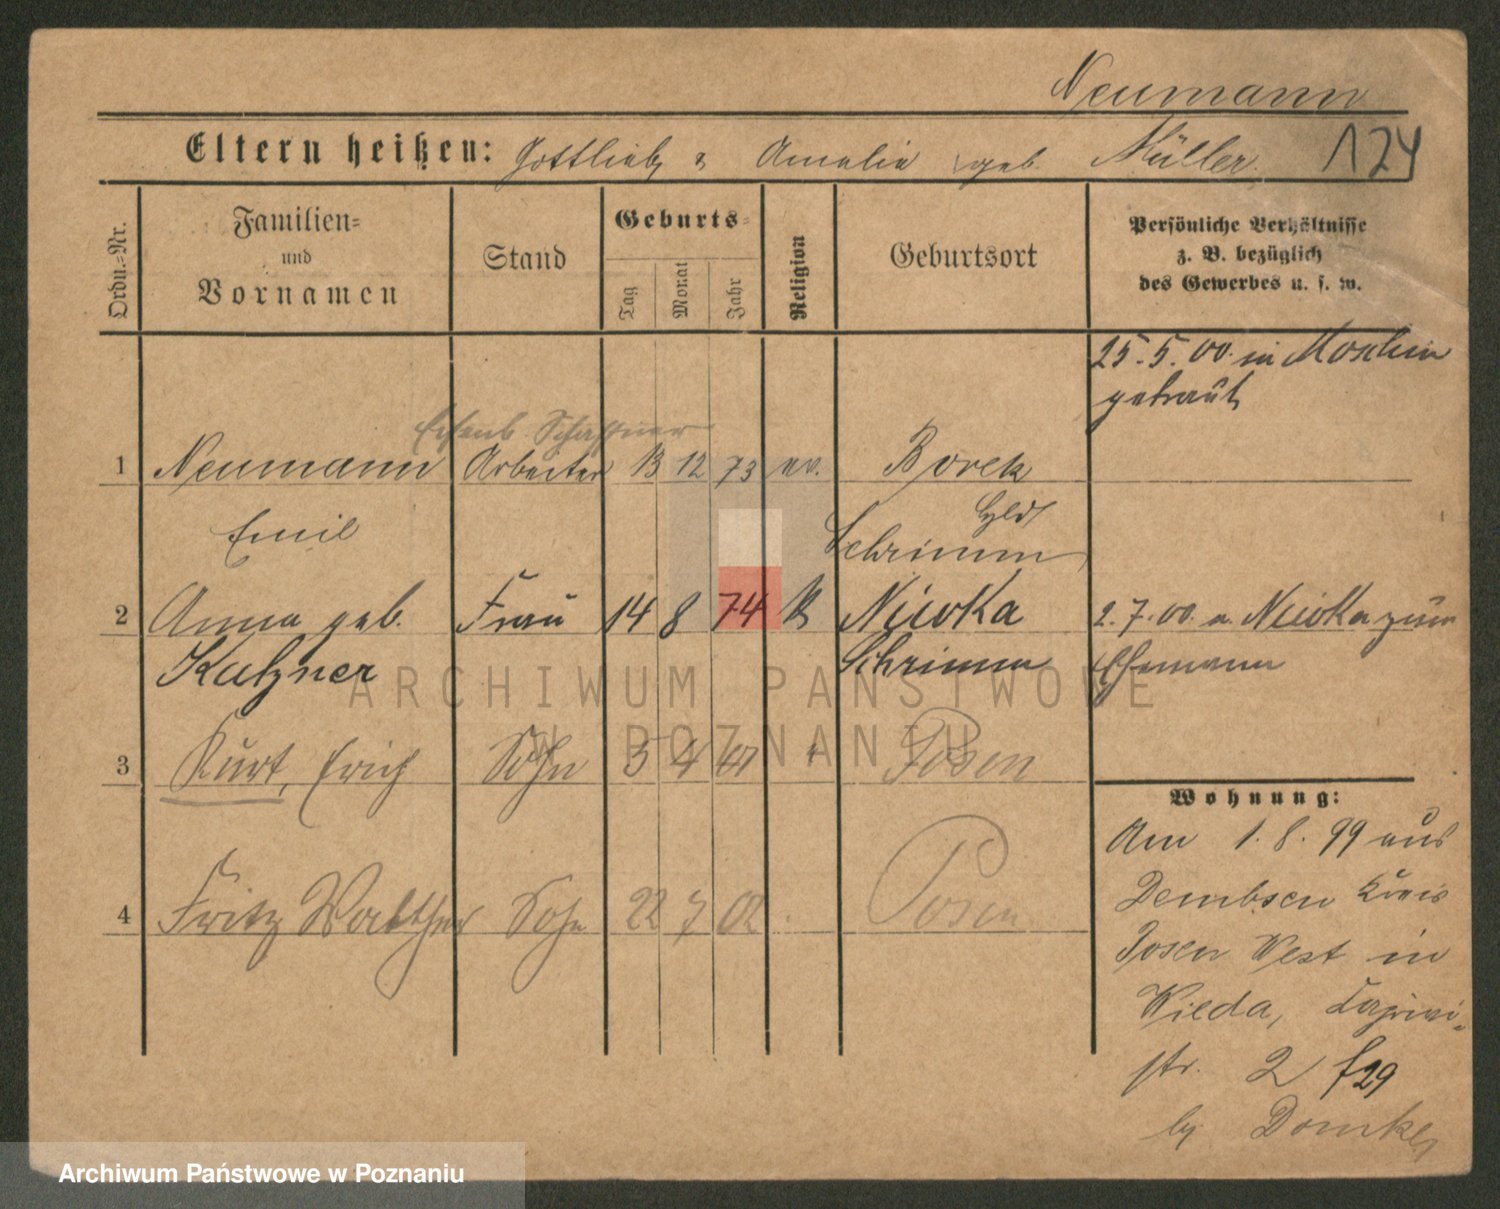 Neumann
Eltern heißen: Gottlieb & Amalie geb. Müller 124
Ordn.=Nr.
Familien=
und
Vornamen
Stand
Geburts=
Tag
Monat
Jahr
Religion
Geburtsort
Persönliche Verhältnisse
z. B. bezüglich
des Gewerbes u. s. w.
25.5.00. in Moschin
getraut
Eisenb. Schaffner
1 Neumann Arbeiter 13 12 73 ev. Borek
Emil
Schrimm
2 Anna geb. Frau 14 8 74 k Niwka 2.7.00. a. Niwka zum
Katzner Schrimm Ehemann
3 Kurt, Erich Sohn 5 4 01 " Posen
Wohnung:
Am 1.8.99 aus
4 Fritz Walther Sohn 22 7 02 Posen
Dembsen Kreis
Posen West in
Wilda,
str. 2 f29
by
ARCHIWUM PAŃSTWOWE
W POZNANIU
Archiwum Państwowe w Poznaniu